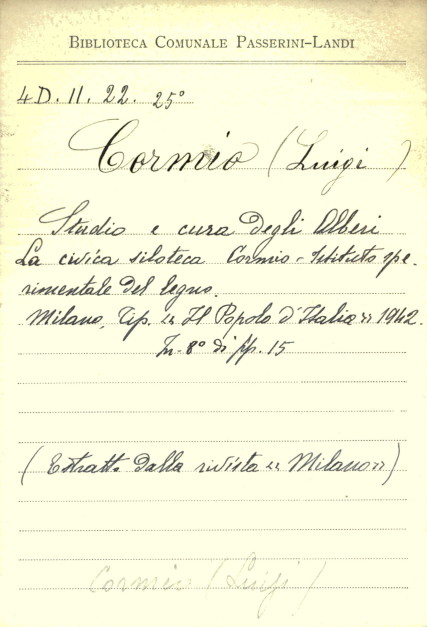 BIBLIOTECA COMUNALE PASSERINI-LANDI
4 D. 11. 22. 25°
Cormio (Luigi)
Studio e cura degli Alberi
La civica siloteca Cormio - Istituto spe-
rimentale del legno.
Milano, Tip. « Il Popolo d'Italia » 1942.
In-8° di pp. 15
(Estratto dalla rivista « Milano »)
Cormio (Luigi)